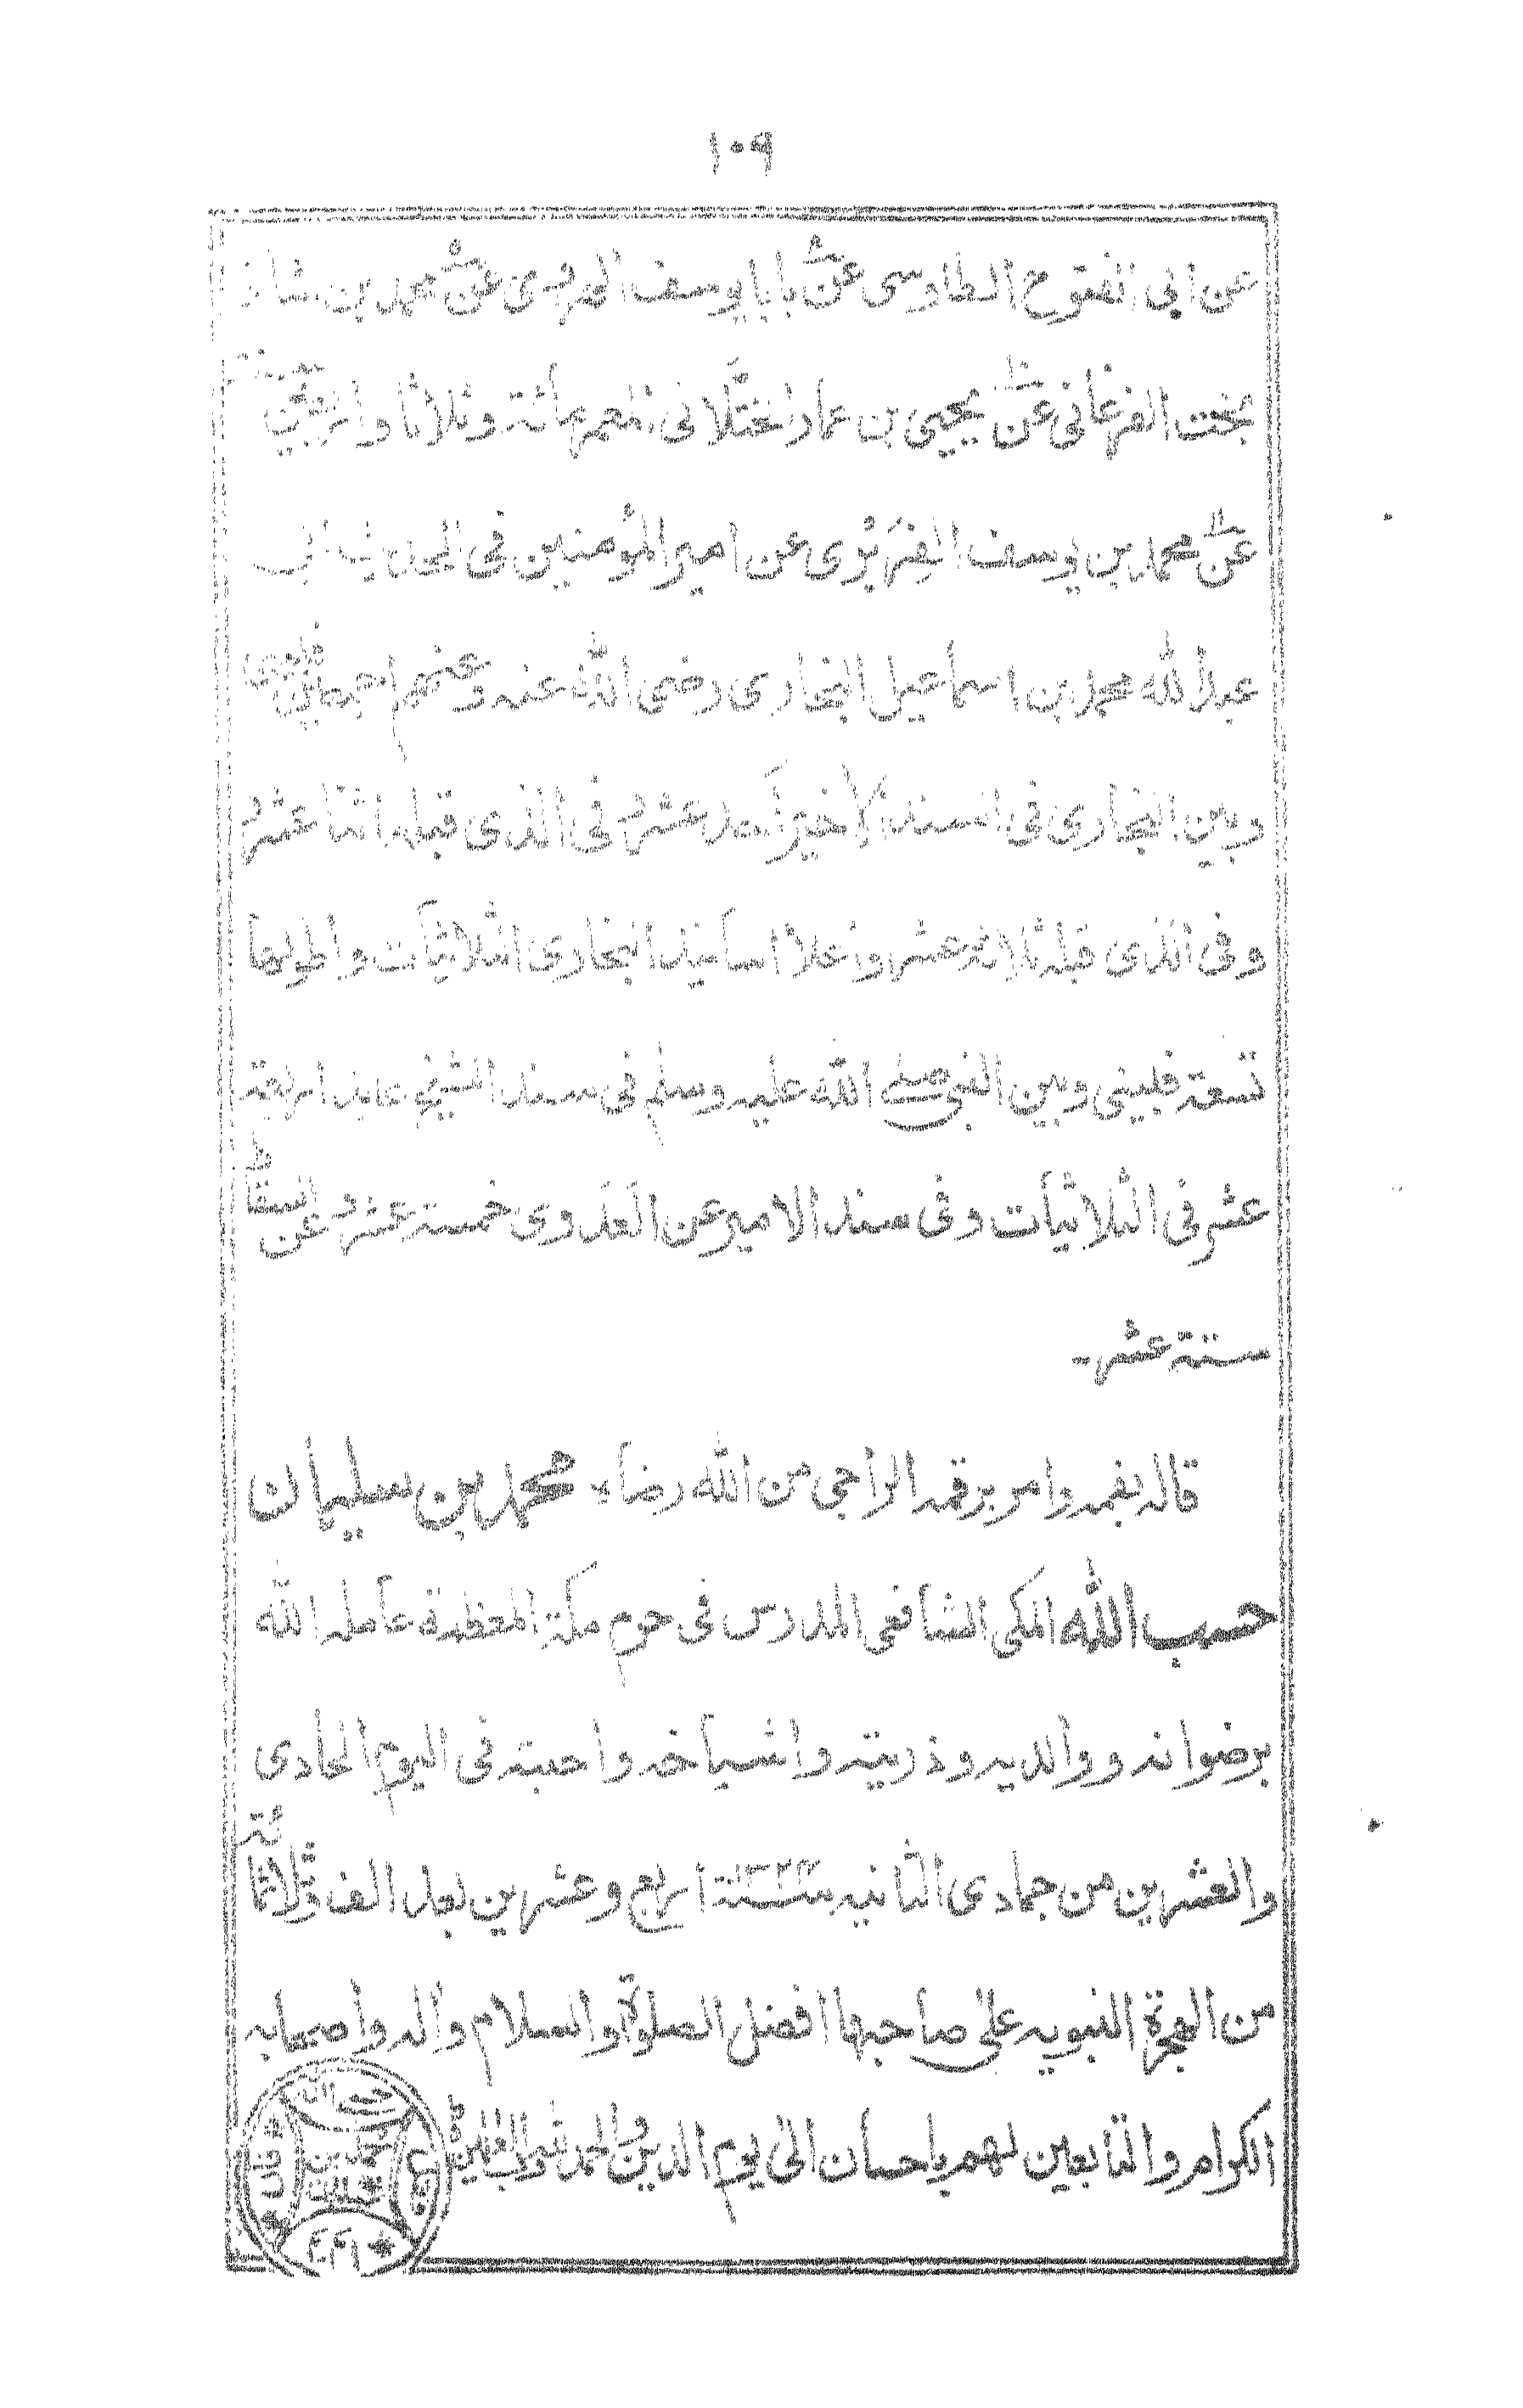 ١٠٩
عن ابى الفتوح الطاوسى عن بابا يوسف الهروى عن محمد بن شاذ
بخت الفرغانى عن يحيى بن عمار الختلانى المعمر مائة وثلاثا واربعين سنة
عن محمد بن يوسف الفِرَبْرى عن امير المؤمنين فى الحديث ابى
عبد الله محمد بن اسماعيل البخارى رضى الله عنه وعنهم اجمعين فبينى
وبين البخارى فى السند الاخير احد عشر وفى الذى قبله اثنا عشر
وفى الذى قبله ثلاثة عشر واعلا اسانيد البخارى الثلاثيات واطولها
تسعة فبينى وبين النبى صلى الله عليه وسلم فى سند الشيخ عابد اربعة
عشر فى الثلاثيات وفى سند الامير عن العدوى خمسة عشر وعن السقاط
ستة عشر-
قاله بفمه وامر برقمه الراجى من الله رضاه محمد بن سليمان
حسب الله المكى الشافعى المدرس فى حرم مكة المعظمة عامله الله
برضوانه ووالديه وذريته واشياخه واحبته فى اليوم الحادى
والعشرين من جمادى الثانيه سنة ١٣٢٤ اربع وعشرين بعد الف وثلاثمائة
من الهجرة النبويه على صاحبها افضل الصلوة والسلام واله واصحابه
الكرام والتابعين لهم باحسان الى يوم الدين والحمد لله رب العالمين
حسب الله
محمد بن
سليمان